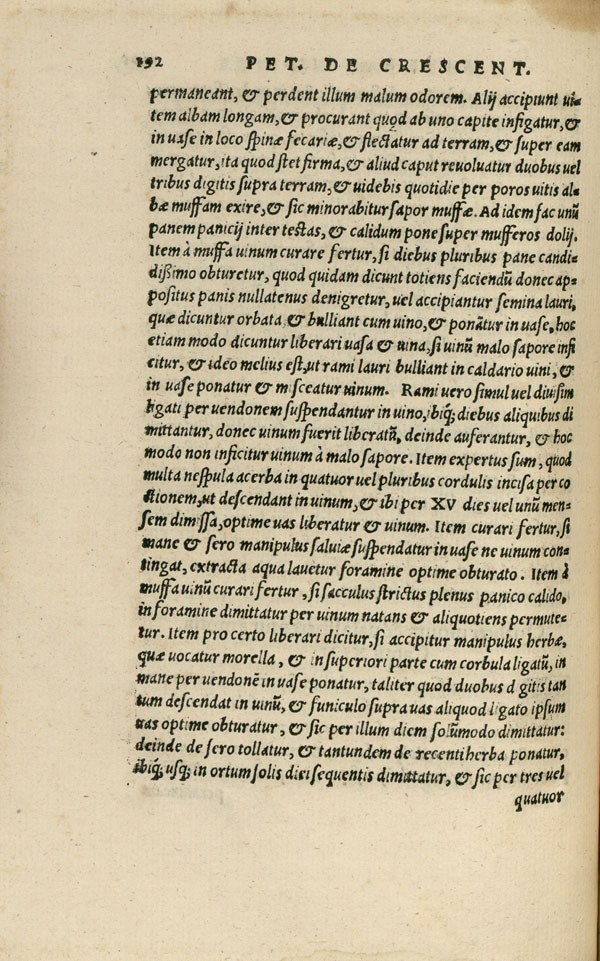 192 PET. DE CRESCENT.
permaneant, & perdent illum malum odorem. Alij accipiunt ui-
tem albam longam, & procurant quod ab uno capite infigatur, &
in uase in loco spinæ fecariæ, & flectatur ad terram, & super eam
mergatur, ita quod stet firma, & aliud caput reuoluatur duobus uel
tribus digitis supra terram, & uidebis quotidie per poros uitis al-
bæ muffam exire, & sic minorabitur sapor muffæ. Ad idem fac unū
panem panicij inter testas, & calidum pone super mufferos dolij.
Item à muffa uinum curare fertur, si diebus pluribus pane candi-
dißimo obturetur, quod quidam dicunt totiens faciendū donec ap-
positus panis nullatenus denigretur, uel accipiantur semina lauri,
quæ dicuntur orbata, & bulliant cum uino, & ponātur in uase, hoc
etiam modo dicuntur liberari uasa & uina, si uinū malo sapore infi
citur, & ideo melius est, ut rami lauri bulliant in caldario uini, &
in uase ponatur & misceatur uinum. Rami uero simul uel diuisim
ligati per uendonem suspendantur in uino, ibiq; diebus aliquibus di
mittantur, donec uinum fuerit liberatū, deinde auferantur, & hoc
modo non inficitur uinum à malo sapore. Item expertus sum, quod
multa nespula acerba in quatuor uel pluribus cordulis incisa per co
stionem, ut descendant in uinum, & ibi per XV dies uel unū men-
sem dimissa, optime uas liberatur & uinum. Item curari fertur, si
mane & sero manipulus saluiæ suspendatur in uase ne uinum con-
tingat, extracta aqua lauetur foramine optime obturato. Item à
muffa uinū curari fertur, si sacculus strictus plenus panico calido,
in foramine dimittatur per uinum natans & aliquotiens permute-
tur. Item pro certo liberari dicitur, si accipitur manipulus herbæ,
quæ uocatur morella, & in superiori parte cum corbula ligatū, in
mane per uendonē in uase ponatur, taliter quod duobus d gitis tan
tum descendat in uinū, & funiculo supra uas aliquod ligato ipsum
uas optime obturatur, & sic per illum diem solūmodo dimittatur:
deinde de sero tollatur, & tantundem de recenti herba ponatur,
ibiq; usq; in ortum solis diei sequentis dimittatur, & sic per tres uel
quatuor